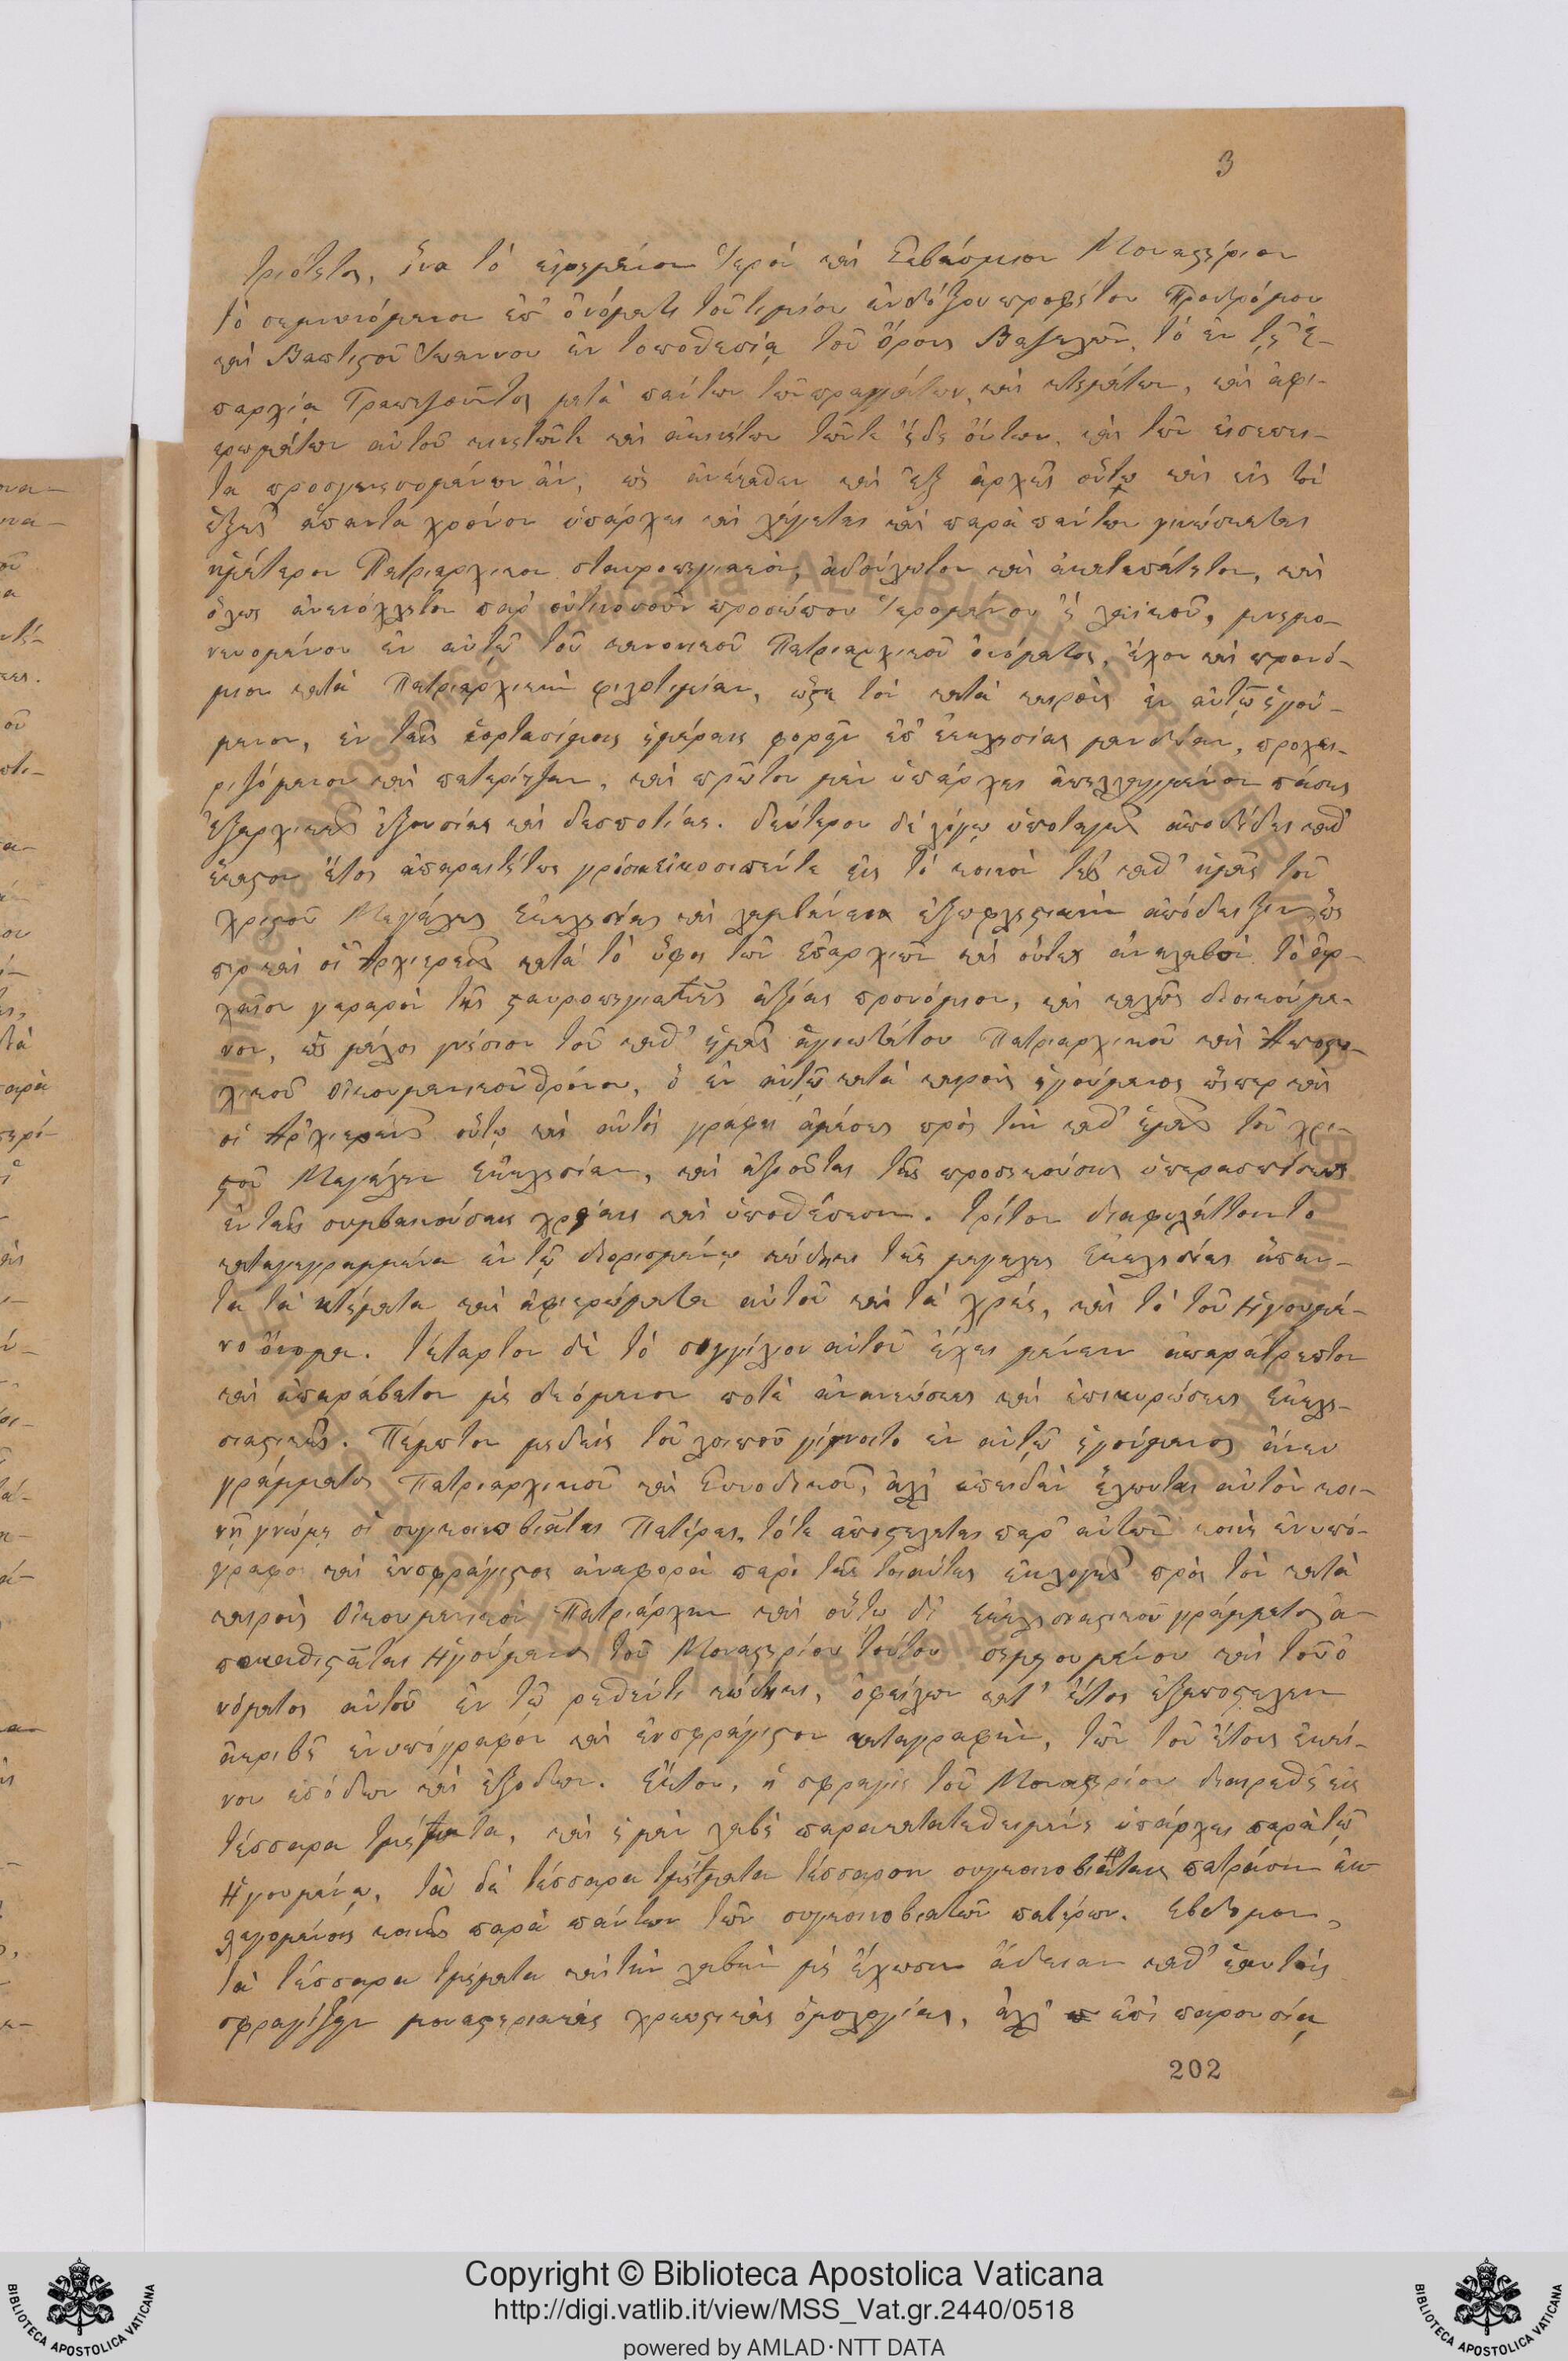 3
τριότητος, ἵνα τὸ εἰρημένον Ἱερὸν καὶ Σεβάσμιον Μοναστήριον
τὸ σεμνυνόμενον ἐπ' ὀνόματι τοῦ τιμίου ἐνδόξου προφήτου Προδρόμου
καὶ Βαπτιστοῦ Ἰωάννου ἐν τοποθεσίᾳ τοῦ Ὄρους Βαζελῶν, τὸ ἐν τῇ Ἐ-
παρχίᾳ Τραπεζοῦντος μετὰ πάντων τῶν πραγμάτων, καὶ κτημάτων, καὶ ἀφι-
ερωμάτων αὐτοῦ κινητῶντε καὶ ἀκινήτων τῶντε ἤδη ὄντων, καὶ τῶν εἰσέπει-
τα προσγενησομένων ἂν, ὡς ἀνέκαθεν καὶ ἐξ ἀρχῆς οὕτω καὶ εἰς τὸν
ἑξῆς ἅπαντα χρόνον ὑπάρχει καὶ λέγεται καὶ παρὰ πάντων γινώσκεται
ἡμέτερον Πατριαρχικὸν σταυροπηγιακὸν, ἀδούλωτον καὶ ἀκαταπάτητον, καὶ
ὅλως ἀνενόχλητον παρ' οὑτινοσοῦν προσώπου Ἱερωμένου ἢ λαϊκοῦ, μνημο-
νευομένου ἐν αὐτῷ τοῦ κανονικοῦ Πατριαρχικοῦ ὀνόματος, ἔχον καὶ προνό-
μιον κατὰ Πατριαρχικὴν φιλοτιμίαν, ὥστε τὸν κατὰ καιροὺς ἐν αὐτῷ ἡγού-
μενον, ἐν ταῖς ἑορτασίμοις ἡμέραις φορεῖν ἐπ' ἐκκλησίας μανδύαν, προχει-
ριζόμενον καὶ πατερίτζαν, καὶ πρῶτον μὲν ὑπάρχει ἀπηλλαγμένον πάσης
Ἐξαρχικῆς ἐξουσίας καὶ δεσποτίας. δεύτερον δὲ λόγῳ ὑποταγῆς ἀποδίδει καθ'
ἕκαστον ἔτος ἀπαραιτήτως γρόσια εἰκοσιπέντε εἰς τὸ κοινὸν τῆς καθ' ἡμᾶς τοῦ
Χριστοῦ Μεγάλης Ἐκκλησίας καὶ λαμβάνειν ἐξωφλητικὴν ἀπόδειξιν ὥς
περ καὶ οἱ Ἀρχιερεῖς κατὰ τὸ ὕφος τῶν Ἐπαρχιῶν καὶ οὕτως ἀναλαβὸν τὸ ἀρ-
χαῖον γεραρὸν τῆς σταυροπηγιακῆς ἀξίας προνόμιον, καὶ καλῶς διοικούμε-
νον, ὡς μέλος γνήσιον τοῦ καθ' ἡμᾶς ἁγιωτάτου Πατριαρχικοῦ καὶ Ἀποστο-
λικοῦ Οἰκουμενικοῦ θρόνου, ὁ ἐν αὐτῷ κατὰ καιροὺς ἡγούμενος ὥσπερ καὶ
οἱ Ἀρχιερεῖς οὕτω καὶ αὐτὸς γράφει ἀμέσως πρὸς τὴν καθ' ἡμᾶς τοῦ χρι-
στοῦ Μεγάλην Ἐκκλησίαν, καὶ ἀξιοῦται τῆς προσηκούσης ὑπερασπίσεως
ἐν ταῖς συμβαινούσαις χρείαις καὶ ὑποθέσεσιν. τρίτον διαφυλάττοντο
καταγεγραμμένα ἐν τῷ διορισμένῳ κώδικι τῆς μεγάλης Ἐκκλησίας ἅπαν-
τα τὰ κτήματα καὶ ἀφιερώματα αὐτοῦ καὶ τὰ χρέη, καὶ τὸ τοῦ Ἡγουμέ-
νο ὄνομα. τέταρτον δὲ τὸ σιγγίλιον αὐτοῦ ἔχει μένειν ἀπαράτρεπτον
καὶ ἀπαράβατον μὴ δεόμενον ποτὲ ἀνανεώσεως καὶ ἐπικυρώσεως Ἐκκλη-
σιαστικῆς. Πέμπτον μηδεὶς τοῦ λοιποῦ γίγνοιτο ἐν αὐτῷ ἡγούμενος ἄνευ
γράμματος Πατριαρχικοῦ καὶ Συνοδικοῦ, ἀλλ' ἐπειδὰν ἕλωνται αὐτὸν κοι-
νῇ γνώμῃ οἱ συγκοινοβιᾶται Πατέρες, τότε ἀποστέλεται παρ' αὐτῶν κοινὴ ἐνυπό-
γραφος καὶ ἐνσφράγιστος ἀναφορὰ περὶ τῆς τοιαύτης ἐκλογῆς πρὸς τὸν κατὰ
καιροὺς Οἰκουμενικὸν Πατριάρχην καὶ οὕτω δι' Ἐκκλησιαστικοῦ γράμματος ἀ-
ποκαθιστᾶται Ἡγούμενος τοῦ Μοναστηρίου τούτου σημειουμένου καὶ τοῦ ὀ
νόματος αὐτοῦ ἐν τῷ ῥηθέντι κώδικι, ὀφείλων κατ' ἔτος ἐξαποστέλειν
ἀκριβῆ ἐνυπόγραφον καὶ ἐνσφράγιστον καταγραφὴν, τῶν τοῦ ἔτους ἐκεί-
νου εσόδων καὶ ἐξοδων. Ἕκτον, ἡ σφραγὶς τοῦ Μοναστηρίου διαιρεθῇ εἰς
τέσσαρα τμήματα, καὶ ἡ μὲν λαβὴ παρακατατεθειμένη ὑπάρχει παρὰ τῷ
Ἡγουμένῳ, τὰ δὲ τέσσαρα τμήματα τέσσαρσιν συγκοινοβιάταις πατράσιν ἐκ
λεγομένοις κοινῶς παρὰ πάντων τῶν συγκοινοβιατῶν πατέρων. Εβδομον,
τὰ τέσσαρα τμήματα καὶ τὴν λαβὴν μὴ ἔχωσιν ἄδειαν καθ' ἑαυτοὺς
σφραγίζειν μοναστηριακὰς χρεωστικὰς ὁμολογίας, ἀλλ' ἐπὶ παρουσίᾳ
202
Copyright © Biblioteca Apostolica Vaticana
http://digi.vatlib.it/view/MSS_Vat.gr.2440/0518
powered by AMLAD·NTT DATA